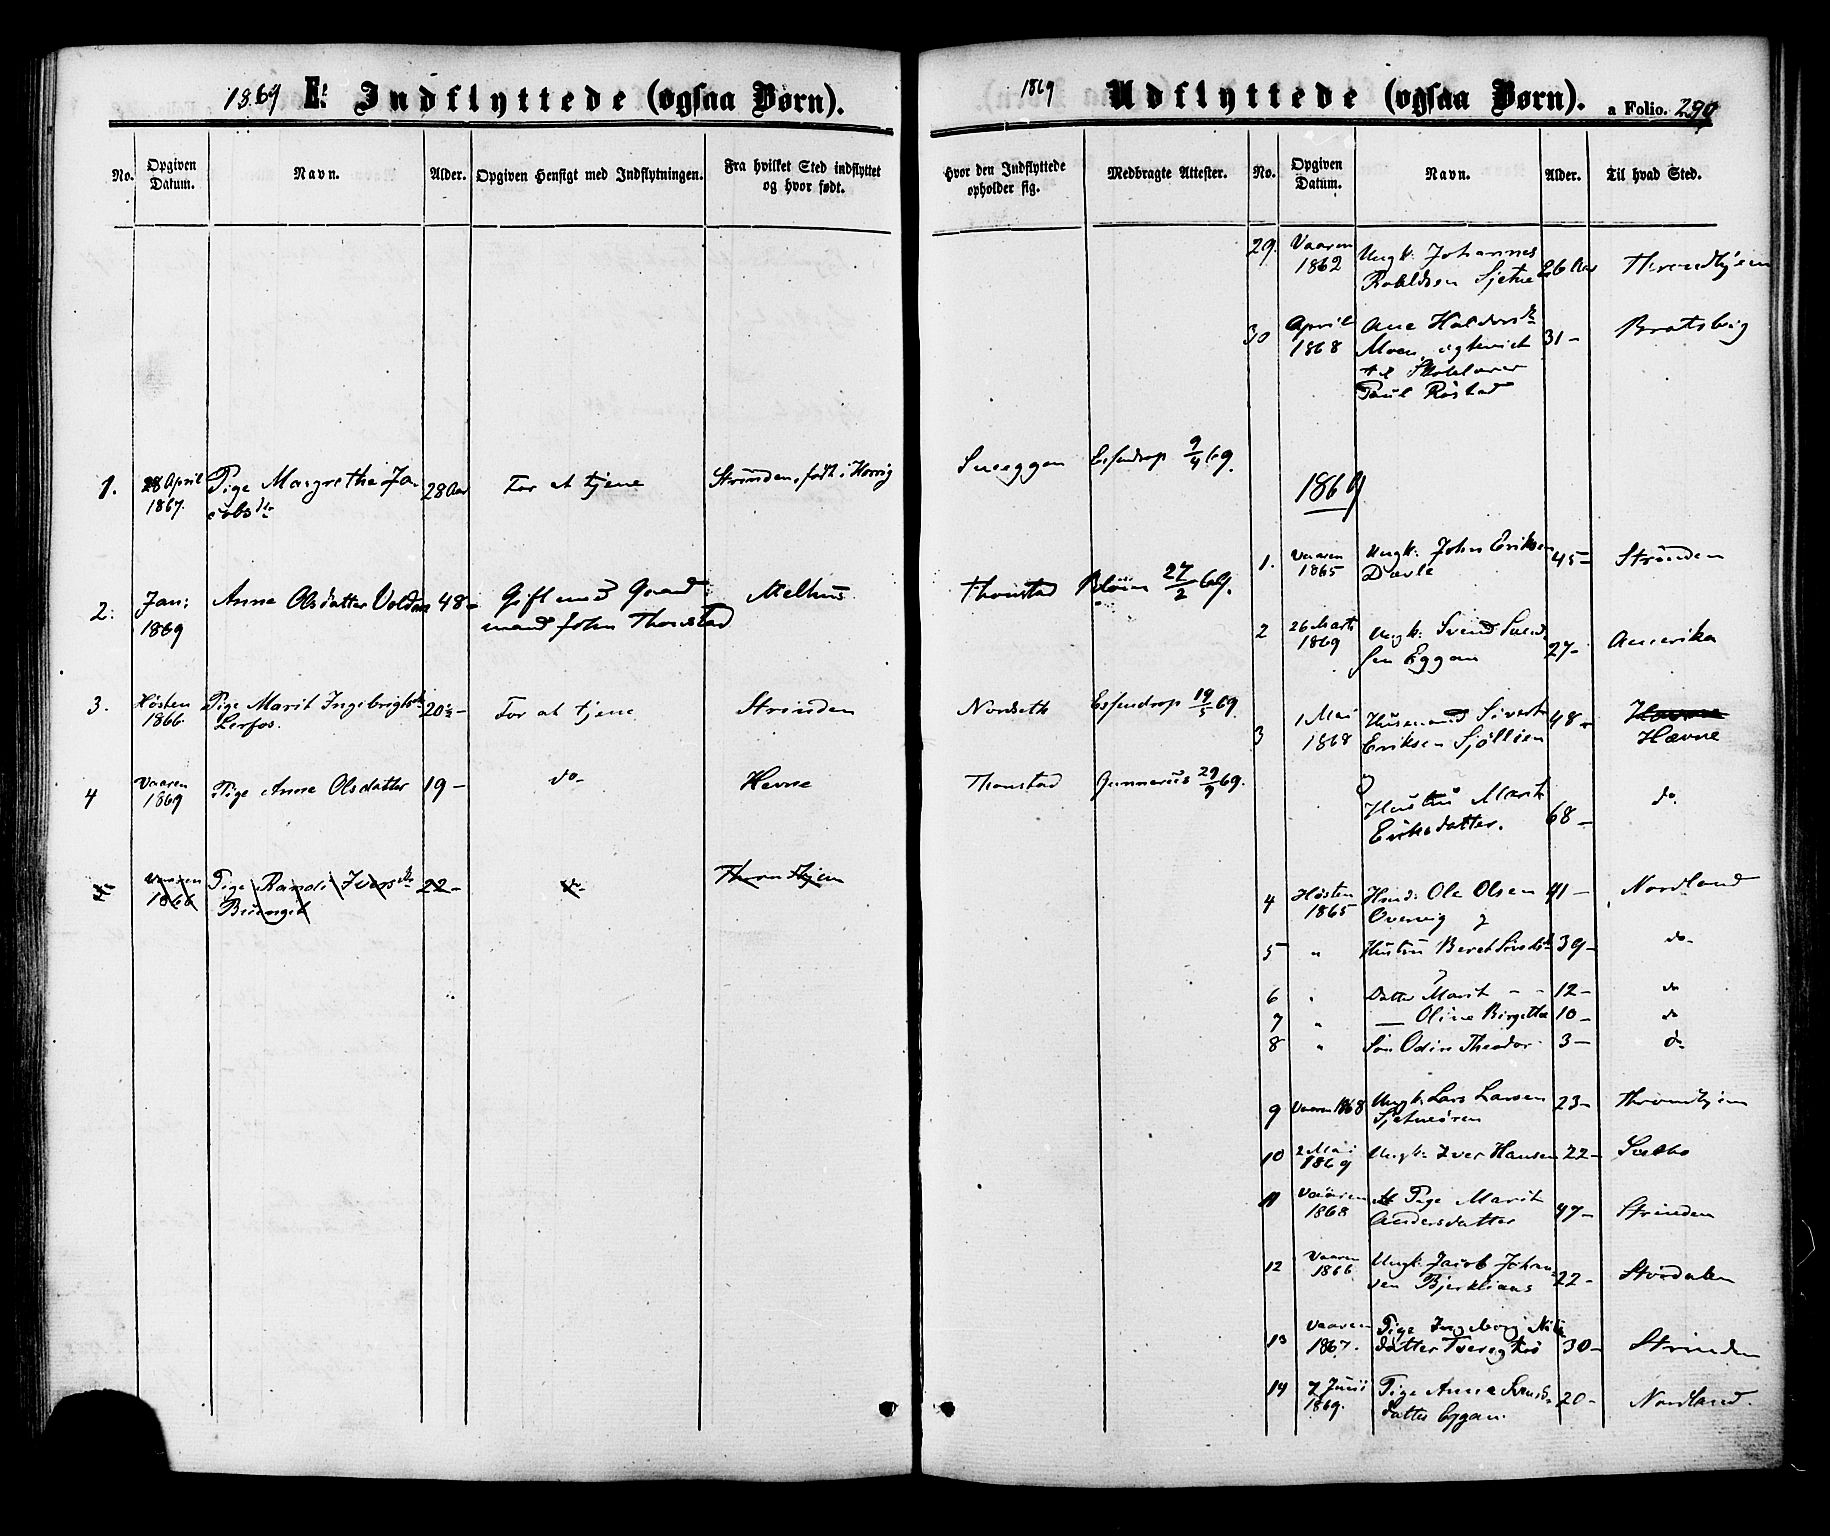 1869 E. Indflyttede (ogsaa Børn).
No. Opgiven Datum. Navn. Alder. Opgiven Hensigt med Indflytningen. Fra hvilket Sted indflyttet og hvor født.
1. 28 April 1867. Pige Margrethe Jacobsdr 28 Aar For at tjene Strinden, født i
2. Jan: 1869 Anne Olsdatter Volden 48 - Gift med Gaardmand John Thonstad Melhus
3. Høsten 1866 Pige Marit Ingebrigtsdr Lerfos. 20½ - For at tjene Strinden
4 Vaaren 1869 Pige Anne Olsdatter 19 - do - Hevne
Vaaren 1866 Pige Randi Iversdr 22 - do - Throndhjem
1869 Udflyttede (ogsaa Børn). a Folio. 290
Hvor den Indflyttede opholder sig. Medbragte Attester. No. Opgiven Datum. Navn. Alder. Til hvad Sted.
Sneeggen Essendrop 9/4 69.
Thonstad 27/2 69.
Nordseth Essendrop 19/5 69.
Thonstad Gunnerus 29/9 69.
29. Vaaren 1862 Ungk: Johannes Sjetne 26 Aar Throndhjem
30 April 1868 Ane Haldorsdr Moen, egteviet til Skolelærer Paul Røstad 31 - Bratsvig
1869
1. Vaaren 1865 Ungk: John Eriksen 45 - Strinden
2 26 Marts 1869 Ungk: Svend Svendsen Eggan 27 - Amerika
3 1 Mai 1868 Husmand Sivert Eriksen Sjøllien 48 - Hævne
Hustru Marit Eriksdatter. 68 - do.
4 Høsten 1865 Husmd: Ole Olsen 41 - Nordland
5 " Hustru Beret 39 - do -
6 " Datter Marit - - 12 - do
7 " — Oline Birgitta 10 - do
8 " Søn Odin Theodor 3 - do
9 Vaaren 1868 Ungk: Lars Larsen Sjetneøren 23 - Throndhjem
10 2 Mai 1869 Ungk: Iver Hansen 22 - Selbo
11 Vaaren 1868 Pige Marit Andersdatter 47 - Strinden
12 Vaaren 1866 Ungk: Jacob Johansen 22 - Stördalen
13 Vaaren 1867. Pige Ingeborg Nilsdatter 30 - Strinden
14 7 Juni 1869. Pige Anna Svendsdatter Eggan. 20 - Nordland.